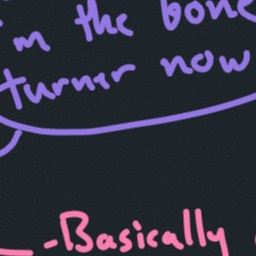 'm the bone
turner now
-Basically